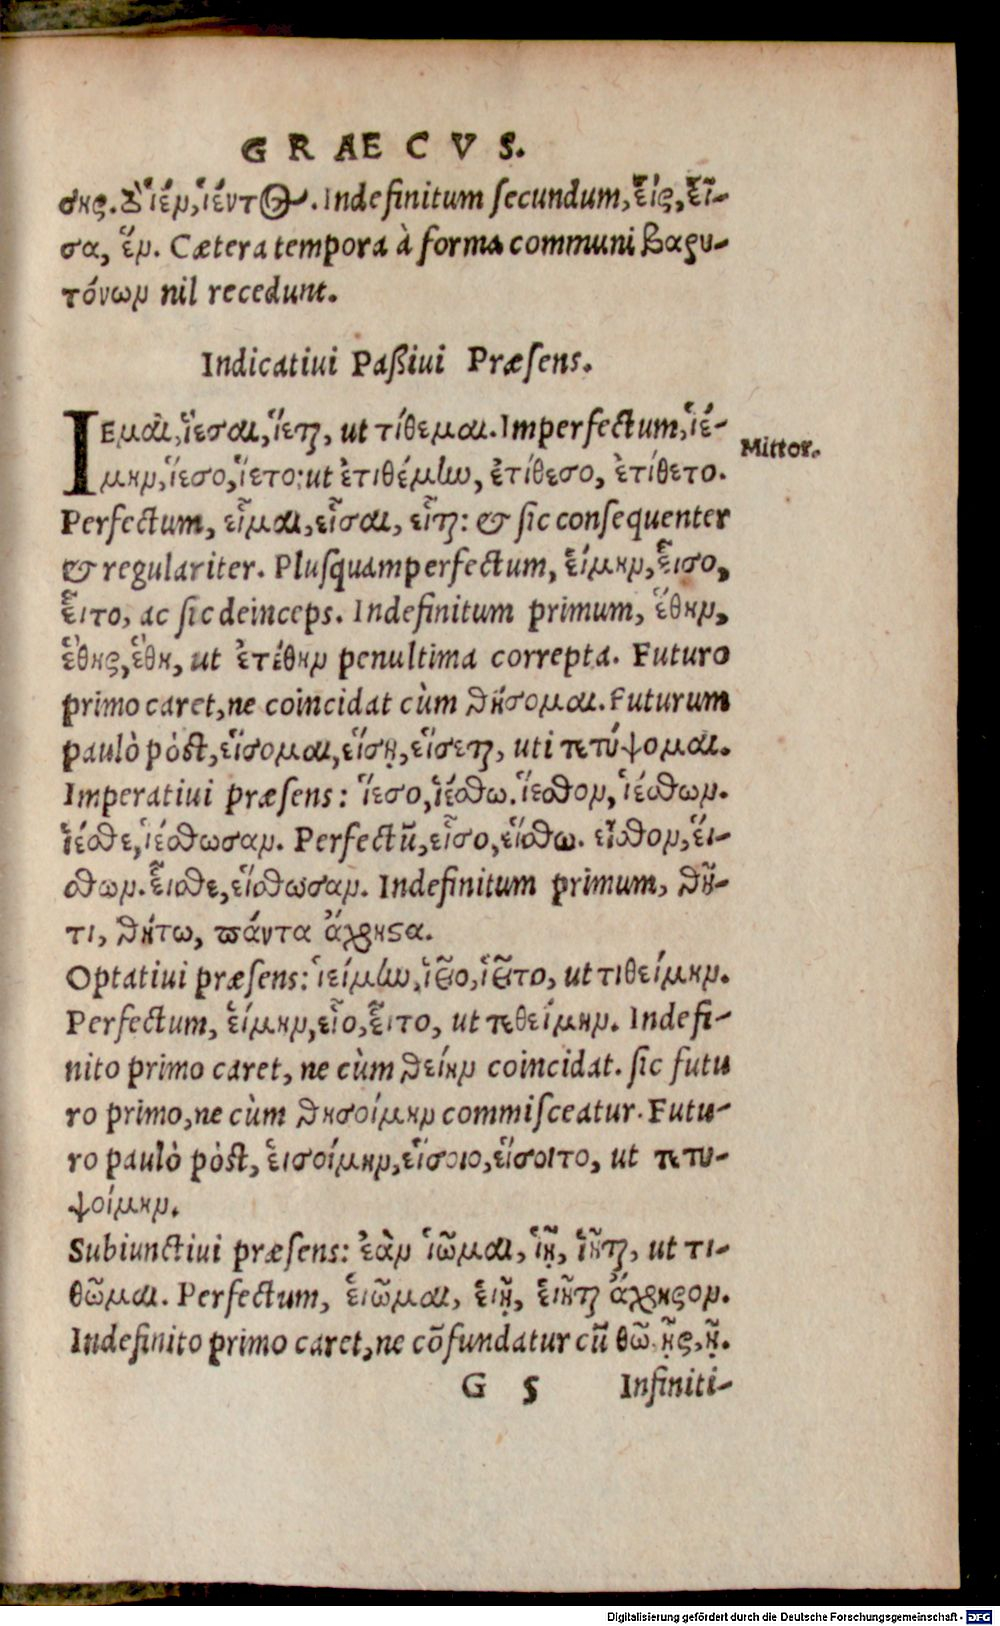 GRAECVS.
σης. Τὸ ἱέν, ἱέντος. Indefinitum secundum, εἵς, εἷ-
σα, ἕν. Cætera tempora à forma communi βαρυ-
τόνων nil recedunt.
Indicatiui Paßiui Præsens.
IEμαι, ἵεσαι, ἵεται, ut τίθεμαι. Imperfectum, ἱέ-
Mittor.
μην, ἵεσο, ἵετο: ut ἐτιθέμην, ἐτίθεσο, ἐτίθετο.
Perfectum, εἷμαι, εἷσαι, εἷται: & sic consequenter
& regulariter. Plusquamperfectum, εἵμην, εἷσο,
εἷτο, ac sic deinceps. Indefinitum primum, ἕθην,
ἕθης, ἕθη, ut ἐτέθην penultima correpta. Futuro
primo caret, ne coincidat cùm θήσομαι. Futurum
paulò pòst, εἵσομαι, εἵσῃ, εἵσεται, uti τετύψομαι.
Imperatiui præsens: ἵεσο, ἱέσθω. ἵεσθον, ἱέσθων.
ἵεσθε, ἱέσθωσαν. Perfectũ, εἷσο, εἵσθω. εἷσθον, εἵ-
σθων. εἷσθε, εἵσθωσαν. Indefinitum primum, θῆ-
τι, θήτω, πάντα ἄχρηστα.
Optatiui præsens: ἱείμην, ἱεῖο, ἱεῖτο, ut τιθείμην.
Perfectum, εἵμην, εἷο, εἷτο, ut τεθείμην. Indefi-
nito primo caret, ne cùm θείην coincidat. sic futu
ro primo, ne cùm θησοίμην commisceatur. Futu-
ro paulò pòst, εἱσοίμην, εἵσοιο, εἵσοιτο, ut τετυ-
ψοίμην.
Subiunctiui præsens: ἐὰν ἱῶμαι, ἱῇ, ἱῆται, ut τι-
θῶμαι. Perfectum, εἱῶμαι, εἱῇ, εἱῆται ἄχρηστον.
Indefinito primo caret, ne cõfundatur cũ θῶ, ῇς, ῇ.
G 5 Infiniti-
Digitalisierung gefördert durch die Deutsche Forschungsgemeinschaft - DFG